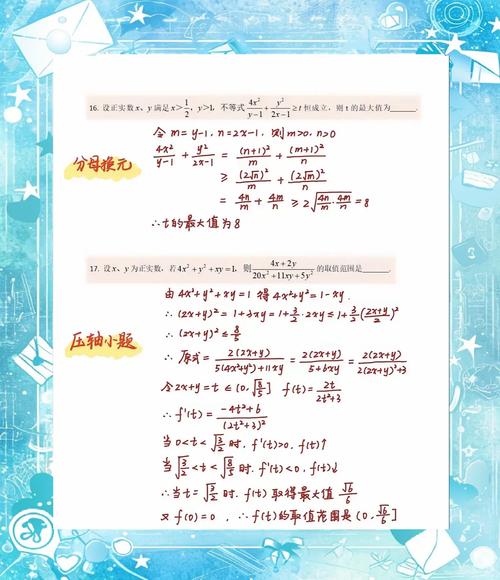 16. 设正实数 x、y 满足 x>1/2, y>1, 不等式 4x²/(y-1) + y²/(2x-1) ≥ t 恒成立, 则 t 的最大值为______.
令 m=y-1, n=2x-1, 则 m>0, n>0
分母换元
4x²/(y-1) + y²/(2x-1) = (n+1)²/m + (m+1)²/n
≥ (2√n)²/m + (2√m)²/n
= 4n/m + 4m/n ≥ 2√(4n/m · 4m/n) = 8
∴ t 的最大值为 8
17. 设 x、y 为正实数, 若 4x²+y²+xy=1, 则 (4x+2y)/(20x²+11xy+5y²) 的取值范围是______.
由 4x²+y²+xy=1 得 4x²+y²=1-xy.
∴ (2x+y)²=1+3xy=1+3/2·2xy≤1+3/2((2x+y)/2)²
压轴小题
∴ (2x+y)²≤8/5
∴ 原式=2(2x+y)/(5(4x²+y²)+11xy) = 2(2x+y)/(5+6xy) = 2(2x+y)/(2(2x+y)²+3)
令 2x+y=t∈(0,√(8/5)] f(t)=2t/(2t²+3)
∴ f'(t)=(-4t²+6)/(2t²+3)²
当 0<t<√(3/2) 时, f'(t)>0, f(t)↑
当 √(3/2)<t<√(8/5) 时. f'(t)<0, f(t)↓
∴ 当 t=√(3/2) 时. f(t) 取得最大值 √6/6
又 f(0)=0 , ∴ f(t) 的取值范围是 (0, √6/6]